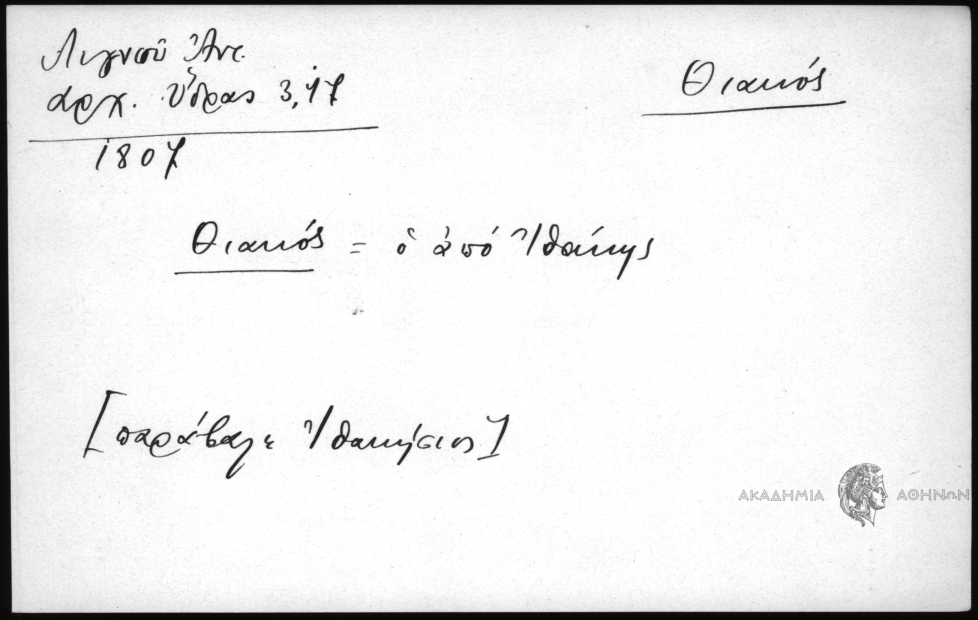 Λιγνοῦ Ἀντ.
ἀρχ. Ὕδρας 3,17
1807
Θιακός
Θιακός = ὁ ἀπό Ἰθάκης
[παράβαλε Ἰθακήσιος]
ΑΚΑΔΗΜΙΑ ΑΘΗΝΩΝ